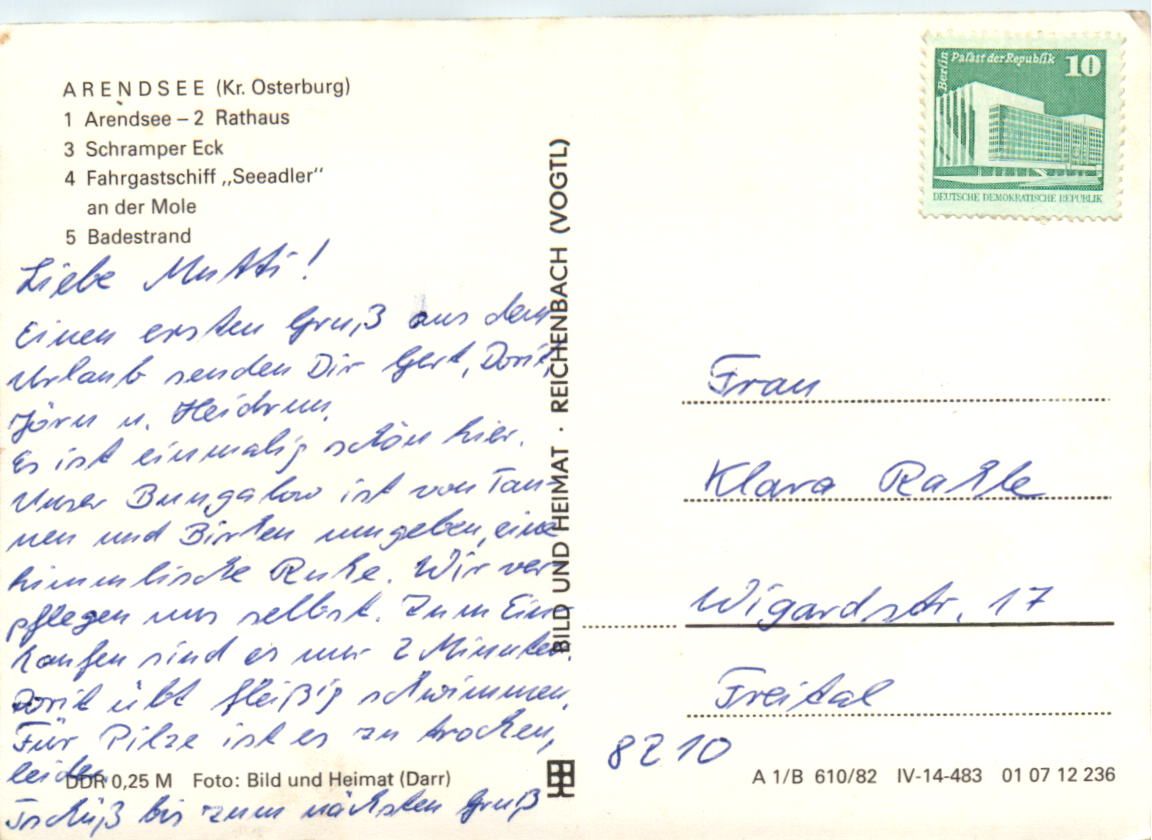 ARENDSEE (Kr. Osterburg)
1 Arendsee – 2 Rathaus
3 Schramper Eck
4 Fahrgastschiff „Seeadler"
an der Mole
5 Badestrand
Liebe Mutti!
Einen ersten Gruß aus dem
Urlaub senden Dir Gert, Dorit,
Jörn u. Heidrun.
Es ist einmalig schön hier.
Unser Bungalow ist von Tan-
nen und Birken umgeben, eine
himmlische Ruhe. Wir ver-
pflegen uns selbst. Zum Ein-
kaufen sind es nur 2 Minuten.
Dorit übt fleißig schwimmen.
Für Pilze ist es zu trocken,
leider.
Tschüß bis zum nächsten Gruß
DDR 0,25 M Foto: Bild und Heimat (Darr)
BILD UND HEIMAT · REICHENBACH (VOGTL)
Berlin
Palast der Republik 10
DEUTSCHE DEMOKRATISCHE REPUBLIK
Frau
Klara
Wigardstr. 17
Freital
8210
A 1/B 610/82 IV-14-483 01 07 12 236